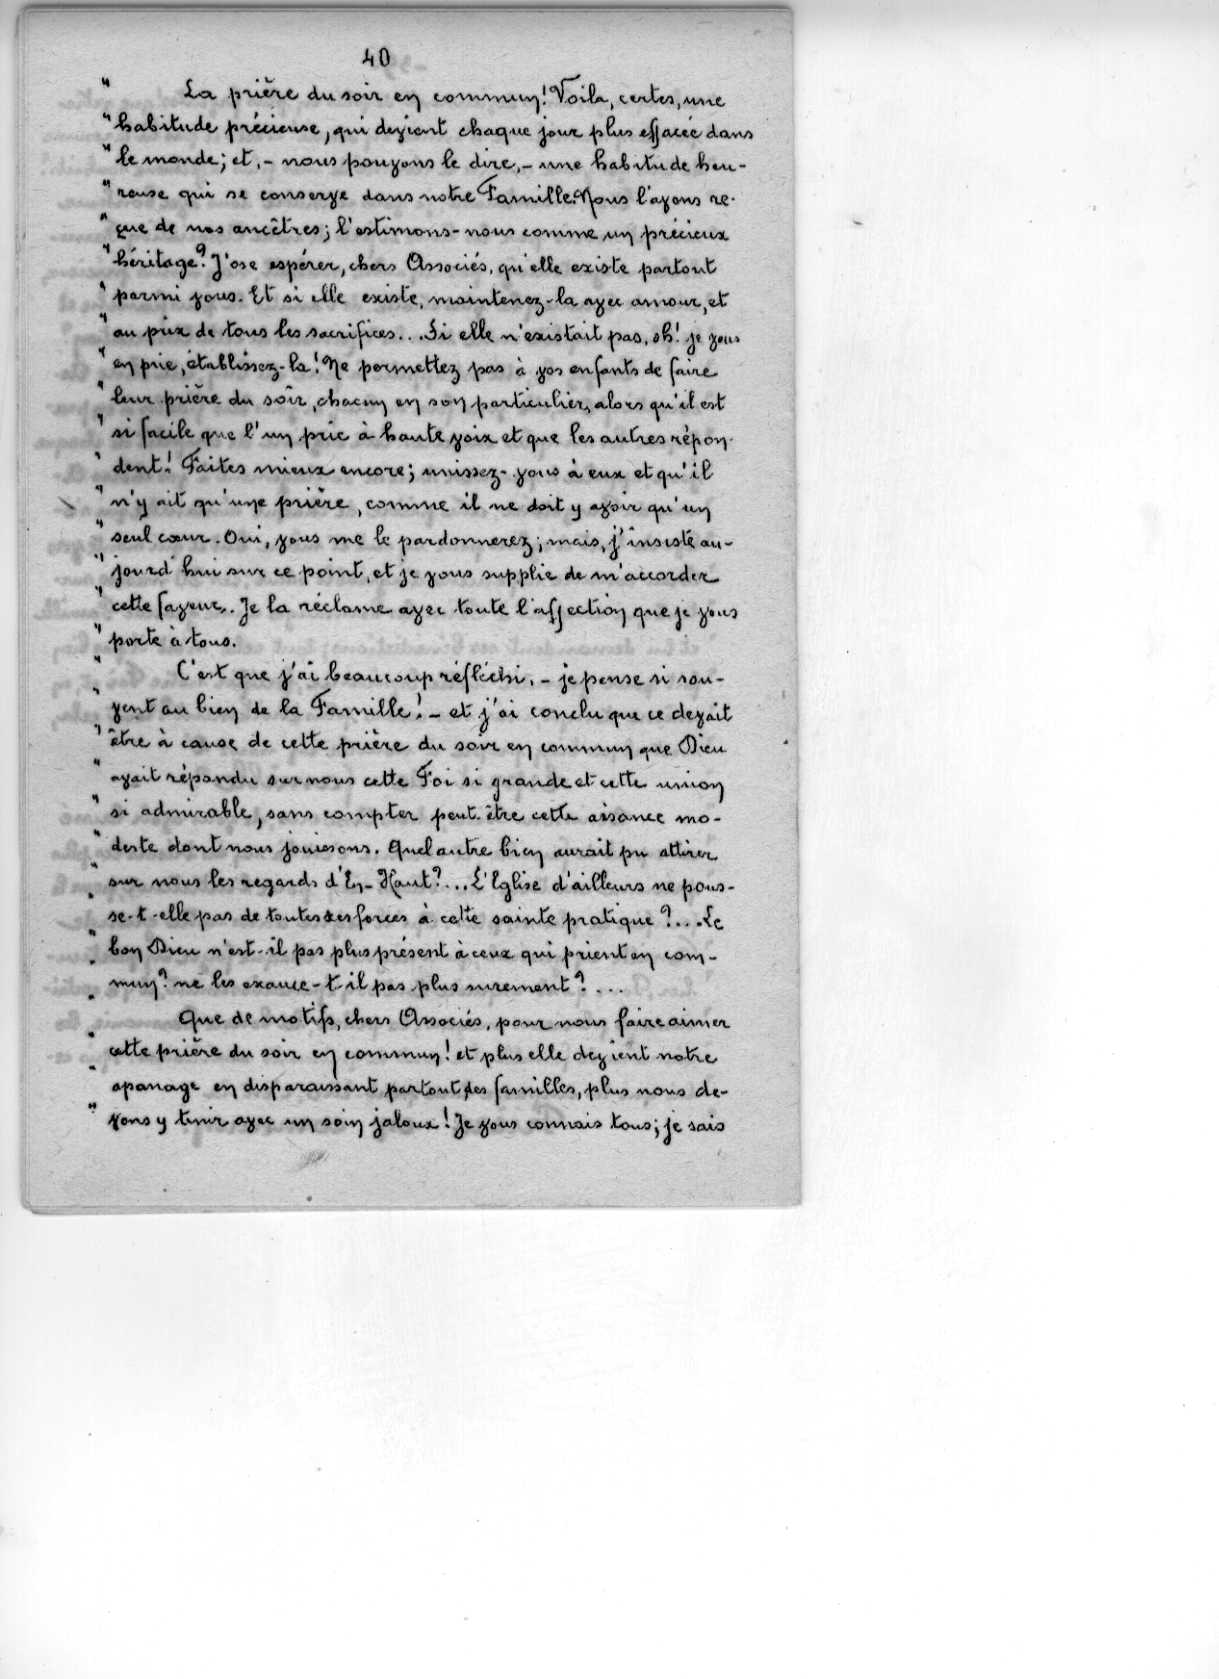 40
" La prière du soir en commun! Voila, certes, une
" habitude précieuse, qui devient chaque jour plus effacée dans
" le monde; et, - nous pouvons le dire, - une habitude heu-
" reuse qui se conserve dans notre Famille. Nous l'avons re-
" çue de nos ancêtres; l'estimons-nous comme un précieux
" héritage? J'ose espérer, chers Associés, qu'elle existe partout
" parmi vous. Et si elle existe, maintenez-la avec amour, et
" au prix de tous les sacrifices... Si elle n'existait pas, oh! je vous
" en prie, établissez-la! Ne permettez pas à vos enfants de faire
" leur prière du soir, chacun en son particulier, alors qu'il est
" si facile que l'un prie à haute voix et que les autres répon-
" dent! Faites mieux encore; unissez-vous à eux et qu'il
" n'y ait qu'une prière, comme il ne doit y avoir qu'un
" seul cœur. Oui, vous me le pardonnerez; mais, j'insiste au-
" jourd'hui sur ce point, et je vous supplie de m'accorder
" cette faveur. Je la réclame avec toute l'affection que je vous
" porte à tous.
" C'est que j'ai beaucoup réfléchi, - je pense si sou-
" vent au bien de la Famille! - et j'ai conclu que ce devait
" être à cause de cette prière du soir en commun que Dieu
" avait répandu sur nous cette Foi si grande et cette union
" si admirable, sans compter peut-être cette aisance mo-
" deste dont nous jouissons. Quel autre bien aurait pu attirer
" sur nous les regards d'En-Haut?... L'Eglise d'ailleurs ne pous-
" se-t-elle pas de toutes ses forces à cette sainte pratique?... Le
" bon Dieu n'est-il pas plus présent à ceux qui prient en com-
" mun? ne les exauce-t-il pas plus surement?...
" Que de motifs, chers Associés, pour nous faire aimer
" cette prière du soir en commun! et plus elle devient notre
" apanage en disparaissant partout des familles, plus nous de-
" vons y tenir avec un soin jaloux! Je vous connais tous; je sais